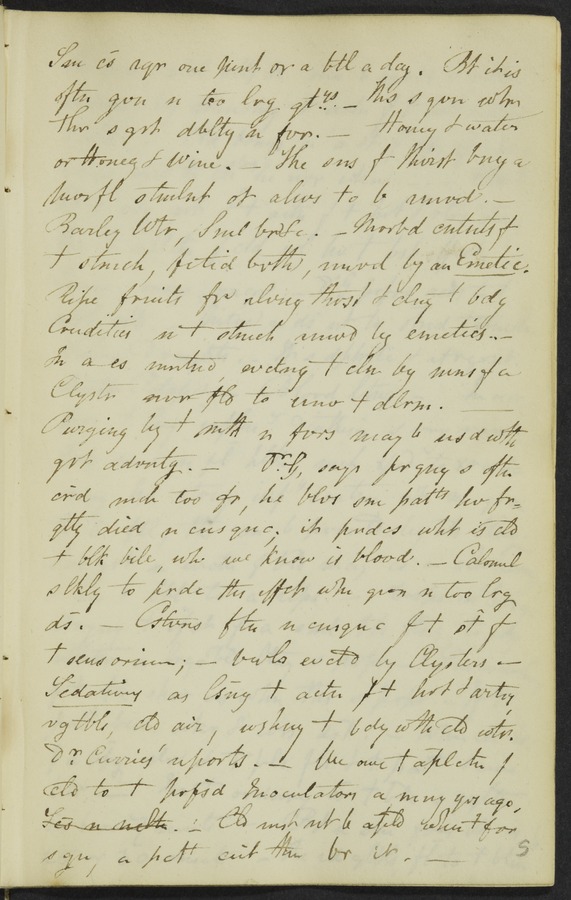 Sm cs rqr one pint or a btl a day. Bt it is
oftn gvn n too lrg qtys. – Ths s gvn whn
thr s grt dblty n fvr. — Honey & water
or Honey & Wine. – The sns f thirst bng a
pwrfl stmlnt ot alws to b rmvd. –
Barley Wtr, Sml br &c. – Morbd cntnts f
t stmch, fetid brth, rmvd by an Emetic.
Ripe fruits fr alvng thrst & clng t bdy
Crudities n t stmch rmvd by emetics. –
In a cs mntnd, evctng t cln by mns of a
Clystr nvr fld to rmv t dlrm. —
Purging by t mth n fvrs may b usd wth
grt advntg. – Dr. G, says prgng s oftn
crd mch too fr, he blvs sm patts hv fr-
qtly died n cnsqnc; it prdcs wht is cld
t blk bile, wh we know is blood. – Calomel
s lkly to prdc this effct whn gvn n too lrg
ds. – Cstvns ftn n cnsqnc f t st f
t sensorium; – bwls evctd by Clysters –
Sedatives as lsng t actn f t hrt & artrs
vgtbls, cld air, wshng t bdy wth cld wtr.
Dr. Curries' reports. – We owe t aplctn f
cld to t prfsd Inoculators a mny yrs ago,
. – Cld mst nt b apld whn t fvr
s gn, a patt cnt thn br it. —
5